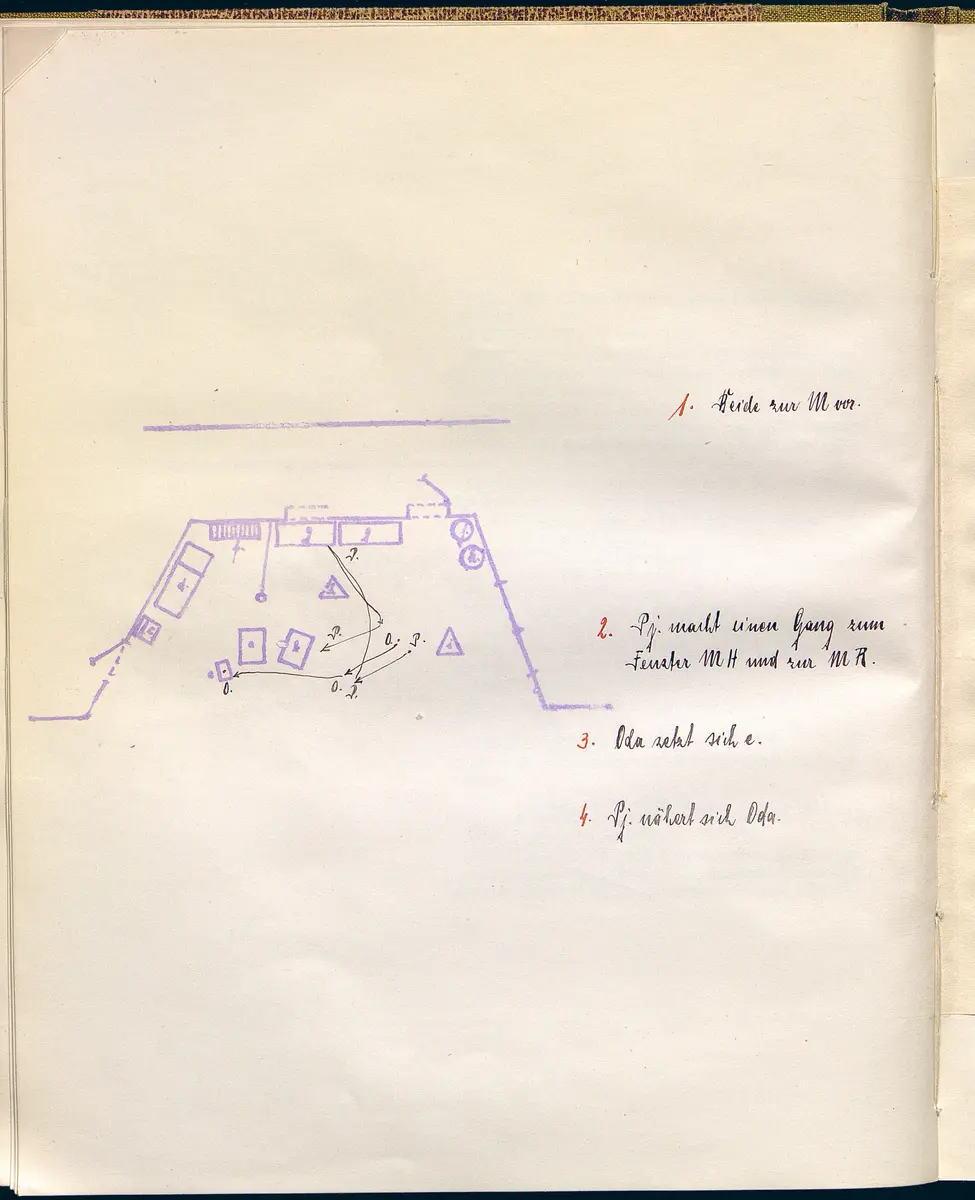 1. Beide zur M vor.
P.
P.
O.
P.
O.
O.
P.
2. Pj. macht einen Gang zum
Fenster MH und zur MR.
3. Oda setzt sich e.
4. Pj. nähert sich Oda.